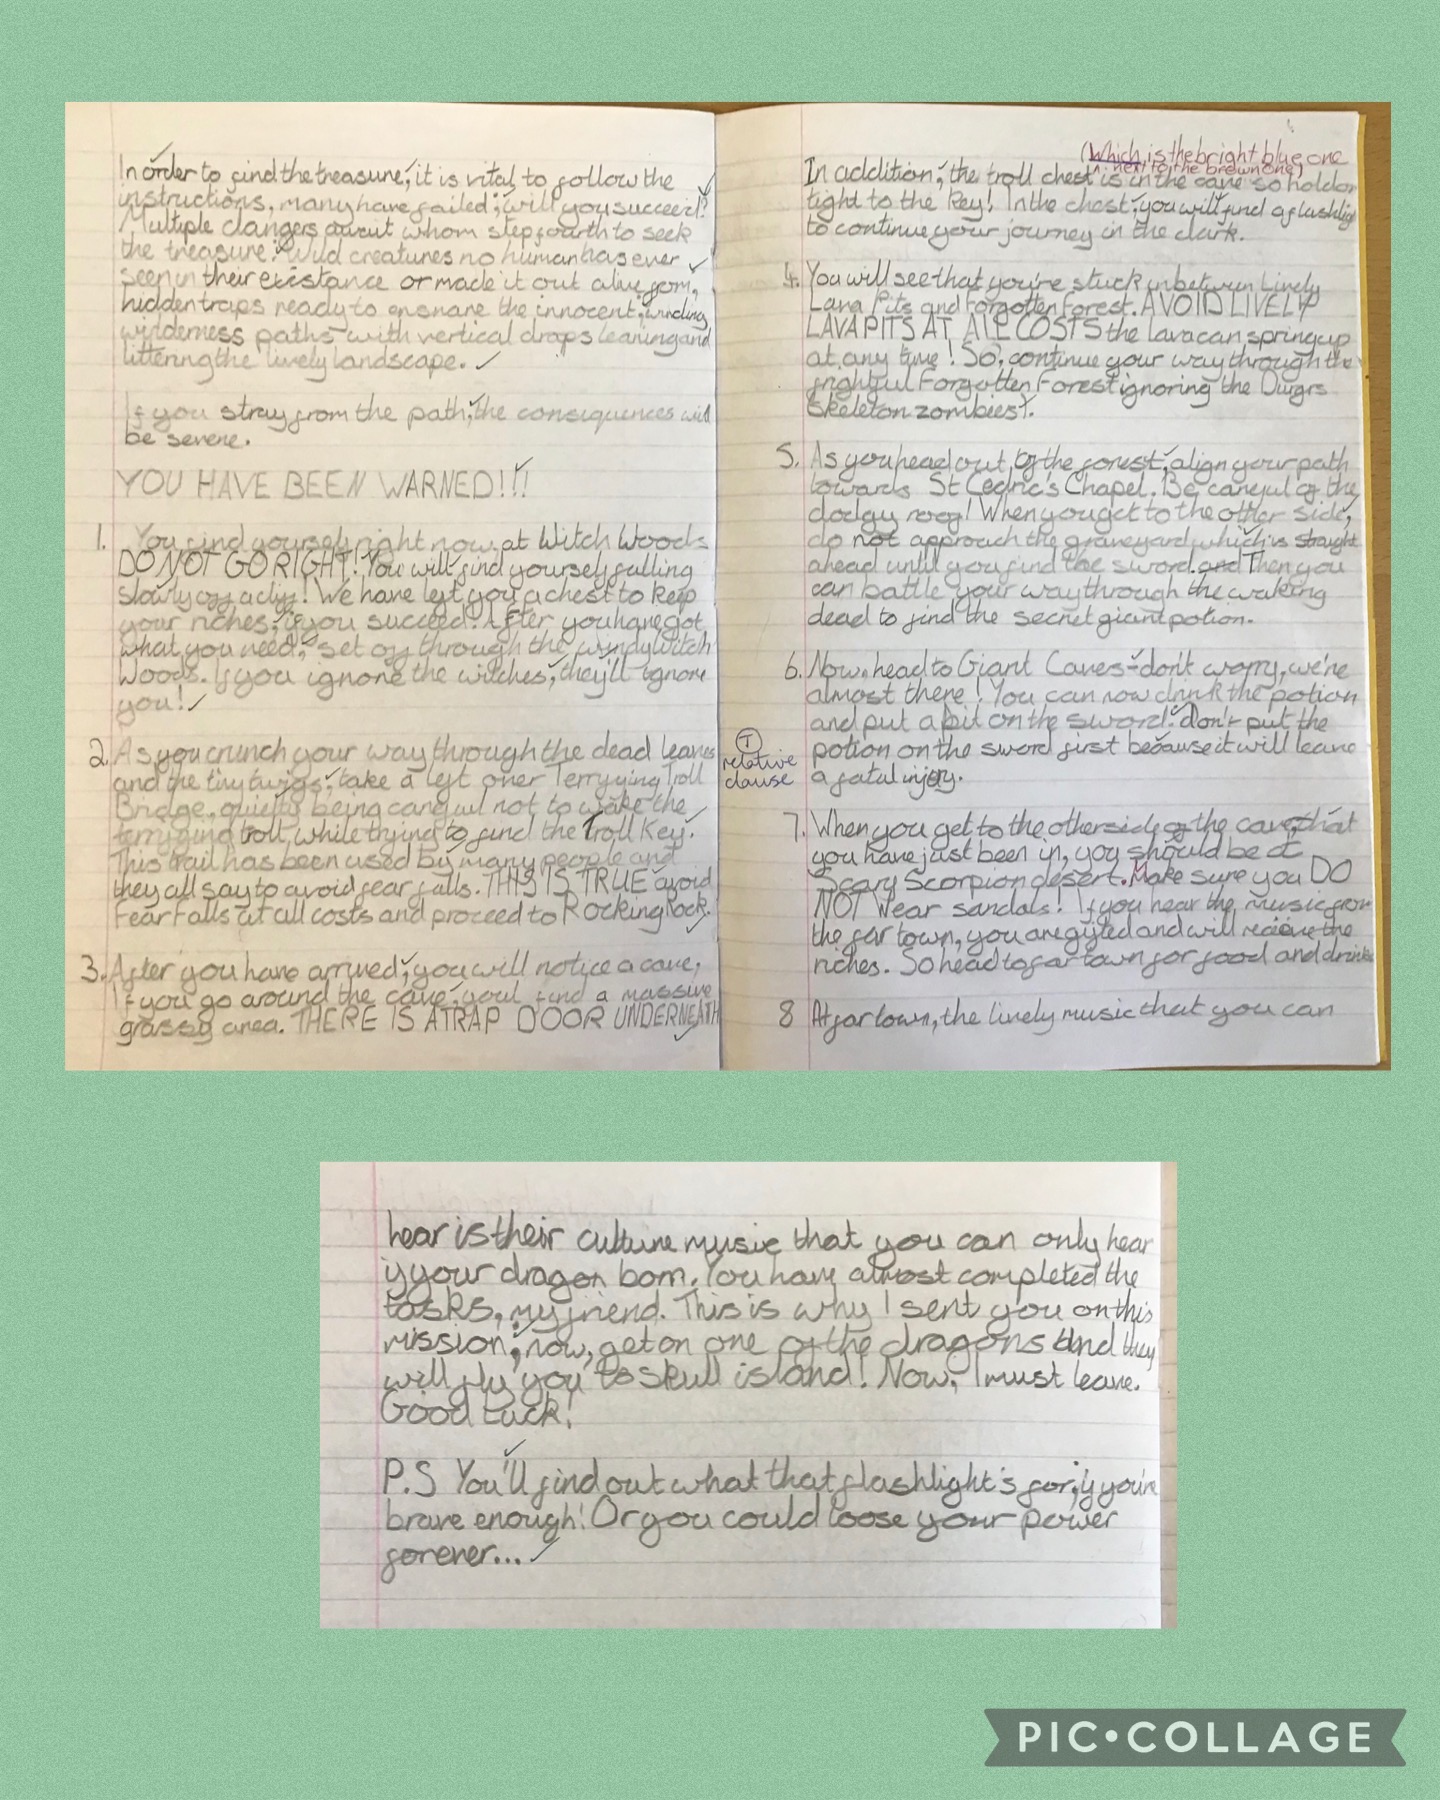 In order to find the treasure, it is vital to follow the
instructions, many have failed; will you succeed?
Multiple dangers await whom step fourth to seek
the treasure: Wild creatures no human has ever
seen in their existance or made it out alive from,
hidden traps ready to ensnare the innocent, winding
wilderness paths with vertical drops leaning and
littering the lively landscape.
If you stray from the path, the consequences will
be severe.
YOU HAVE BEEN WARNED!!!
1. You find yourself right now at Witch Woods
DO NOT GO RIGHT! You will find yourself falling
slowly off a cliff! We have left you a chest to keep
your riches, if you succeed. After you have got
what you need, set off through the windy Witch
Woods. If you ignore the witches, they'll ignore
you!
2. As you crunch your way through the dead leaves
and the tiny twigs, take a left over Terrifying Troll
Bridge, quietly being careful not to wake the
terrifying troll while trying to find the Troll Key.
This trail has been used by many people and
they all say to avoid fear falls. THIS IS TRUE avoid
Fear Falls at all costs and proceed to Rocking Rock.
3. After you have arrived, you will notice a cave,
If you go around the cave, you'l find a massive
grassy area. THERE IS A TRAP DOOR UNDERNEATH
(Which is the bright blue one
next to the brown one)
In addition, the troll chest is in the cave so hold on
tight to the key! In the chest, you will find a flashlight
to continue your journey in the dark.
4. You will see that you're stuck inbetween Lively
Lava Pits and Forgotten Forest. AVOID LIVELY
LAVA PITS AT ALL COSTS the lava can spring up
at any time! So, continue your way through the
frightful Forgotten Forest ignoring the
skeleton zombies!.
5. As you head out of the forest, align your path
towards St Cedric's Chapel. Be careful of the
dodgy roof! When you get to the other side,
do not approach the graveyard which is straight
ahead until you find the sword. and Then you
can battle your way through the waking
dead to find the secret giant potion.
6. Now, head to Giant Caves - don't worry, we're
almost there! You can now drink the potion
and put a bit on the sword: don't put the
T
relative
clause
potion on the sword first because it will leave
a fatal injory.
7. When you get to the otherside of the cave that
you have just been in, you should be at
Scary Scorpion desert. Make sure you DO
NOT wear sandals! If you hear the music from
the far town, you are gifted and will recieve the
riches. So head to far town for food and drinks
8 At far town, the lively music that you can
hear is their culture music that you can only hear
if your dragon born. You have almost completed the
tasks, my friend. This is why I sent you on this
mission; now, get on one of the dragons and they
will fly you to Skull island! Now, I must leave.
Good Luck!
P.S You'll find out what that flashlight's for, if you're
brave enough! Or you could loose your power
forever...
PIC•COLLAGE